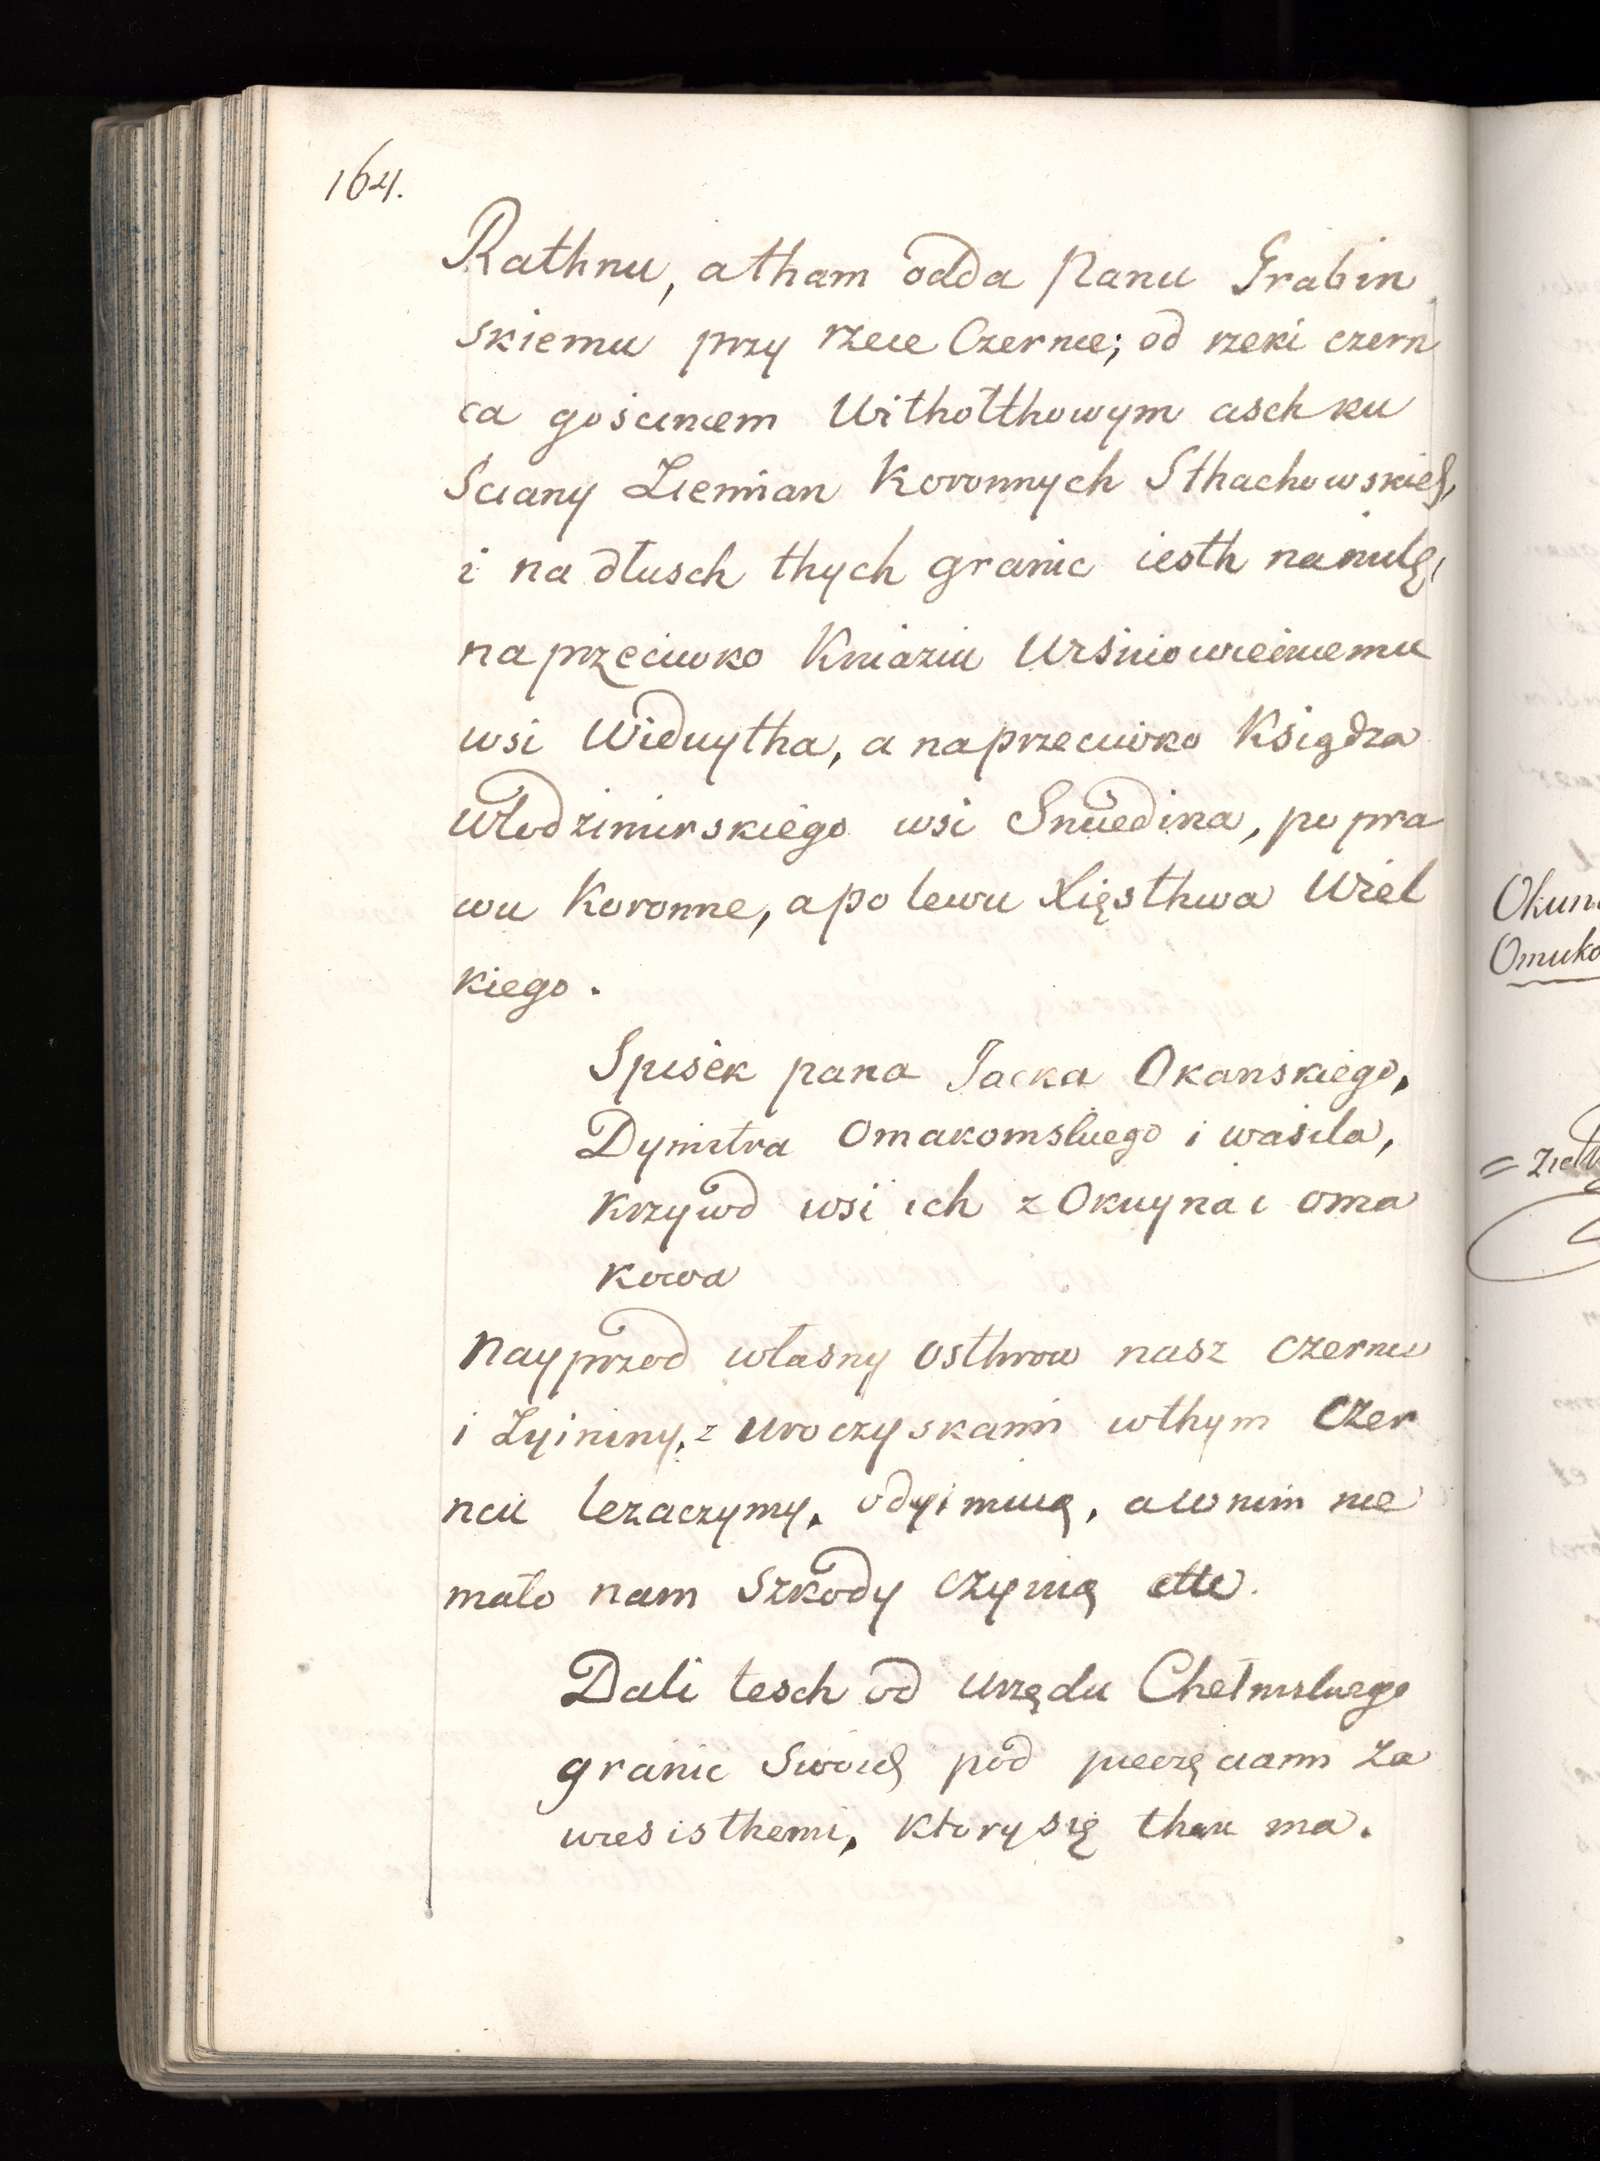 164.
Rathnu, a tham odda Panu Grabin
skiemu przy rzece Czernce; od rzeki czern
ca gościncem Witholthowym asch ku
Ściany Ziemian Koronnych Sthachowskich,
i na dłusch thych granic iesth na milę,
naprzeciwko Kniaziu Wiśniowieckiemu
wsi Widuytha, a naprzeciwko Księdza
Włodzimirskiego wsi Smiedina, po pra
wu Koronne, a po lewu Xięsthwa Wiel
kiego.
Spisek pana Jacka Okanskiego,
Dymitra Omakomskiego i wasila,
Krzywd wsi ich z Okuyna i Oma
kowa
Nayprzod własny osthrow nasz Czernce
i Zyininy, z uroczyskami wthym Czer
ncu lezaczymy, odyimuią, a w nim nie
mało nam szkody czynią ette.
Dali tesch od urzędu Chełmskiego
granic swoich pod pieczęciami za
wiesisthemi, ktory się thak ma.
Okun
Omuko